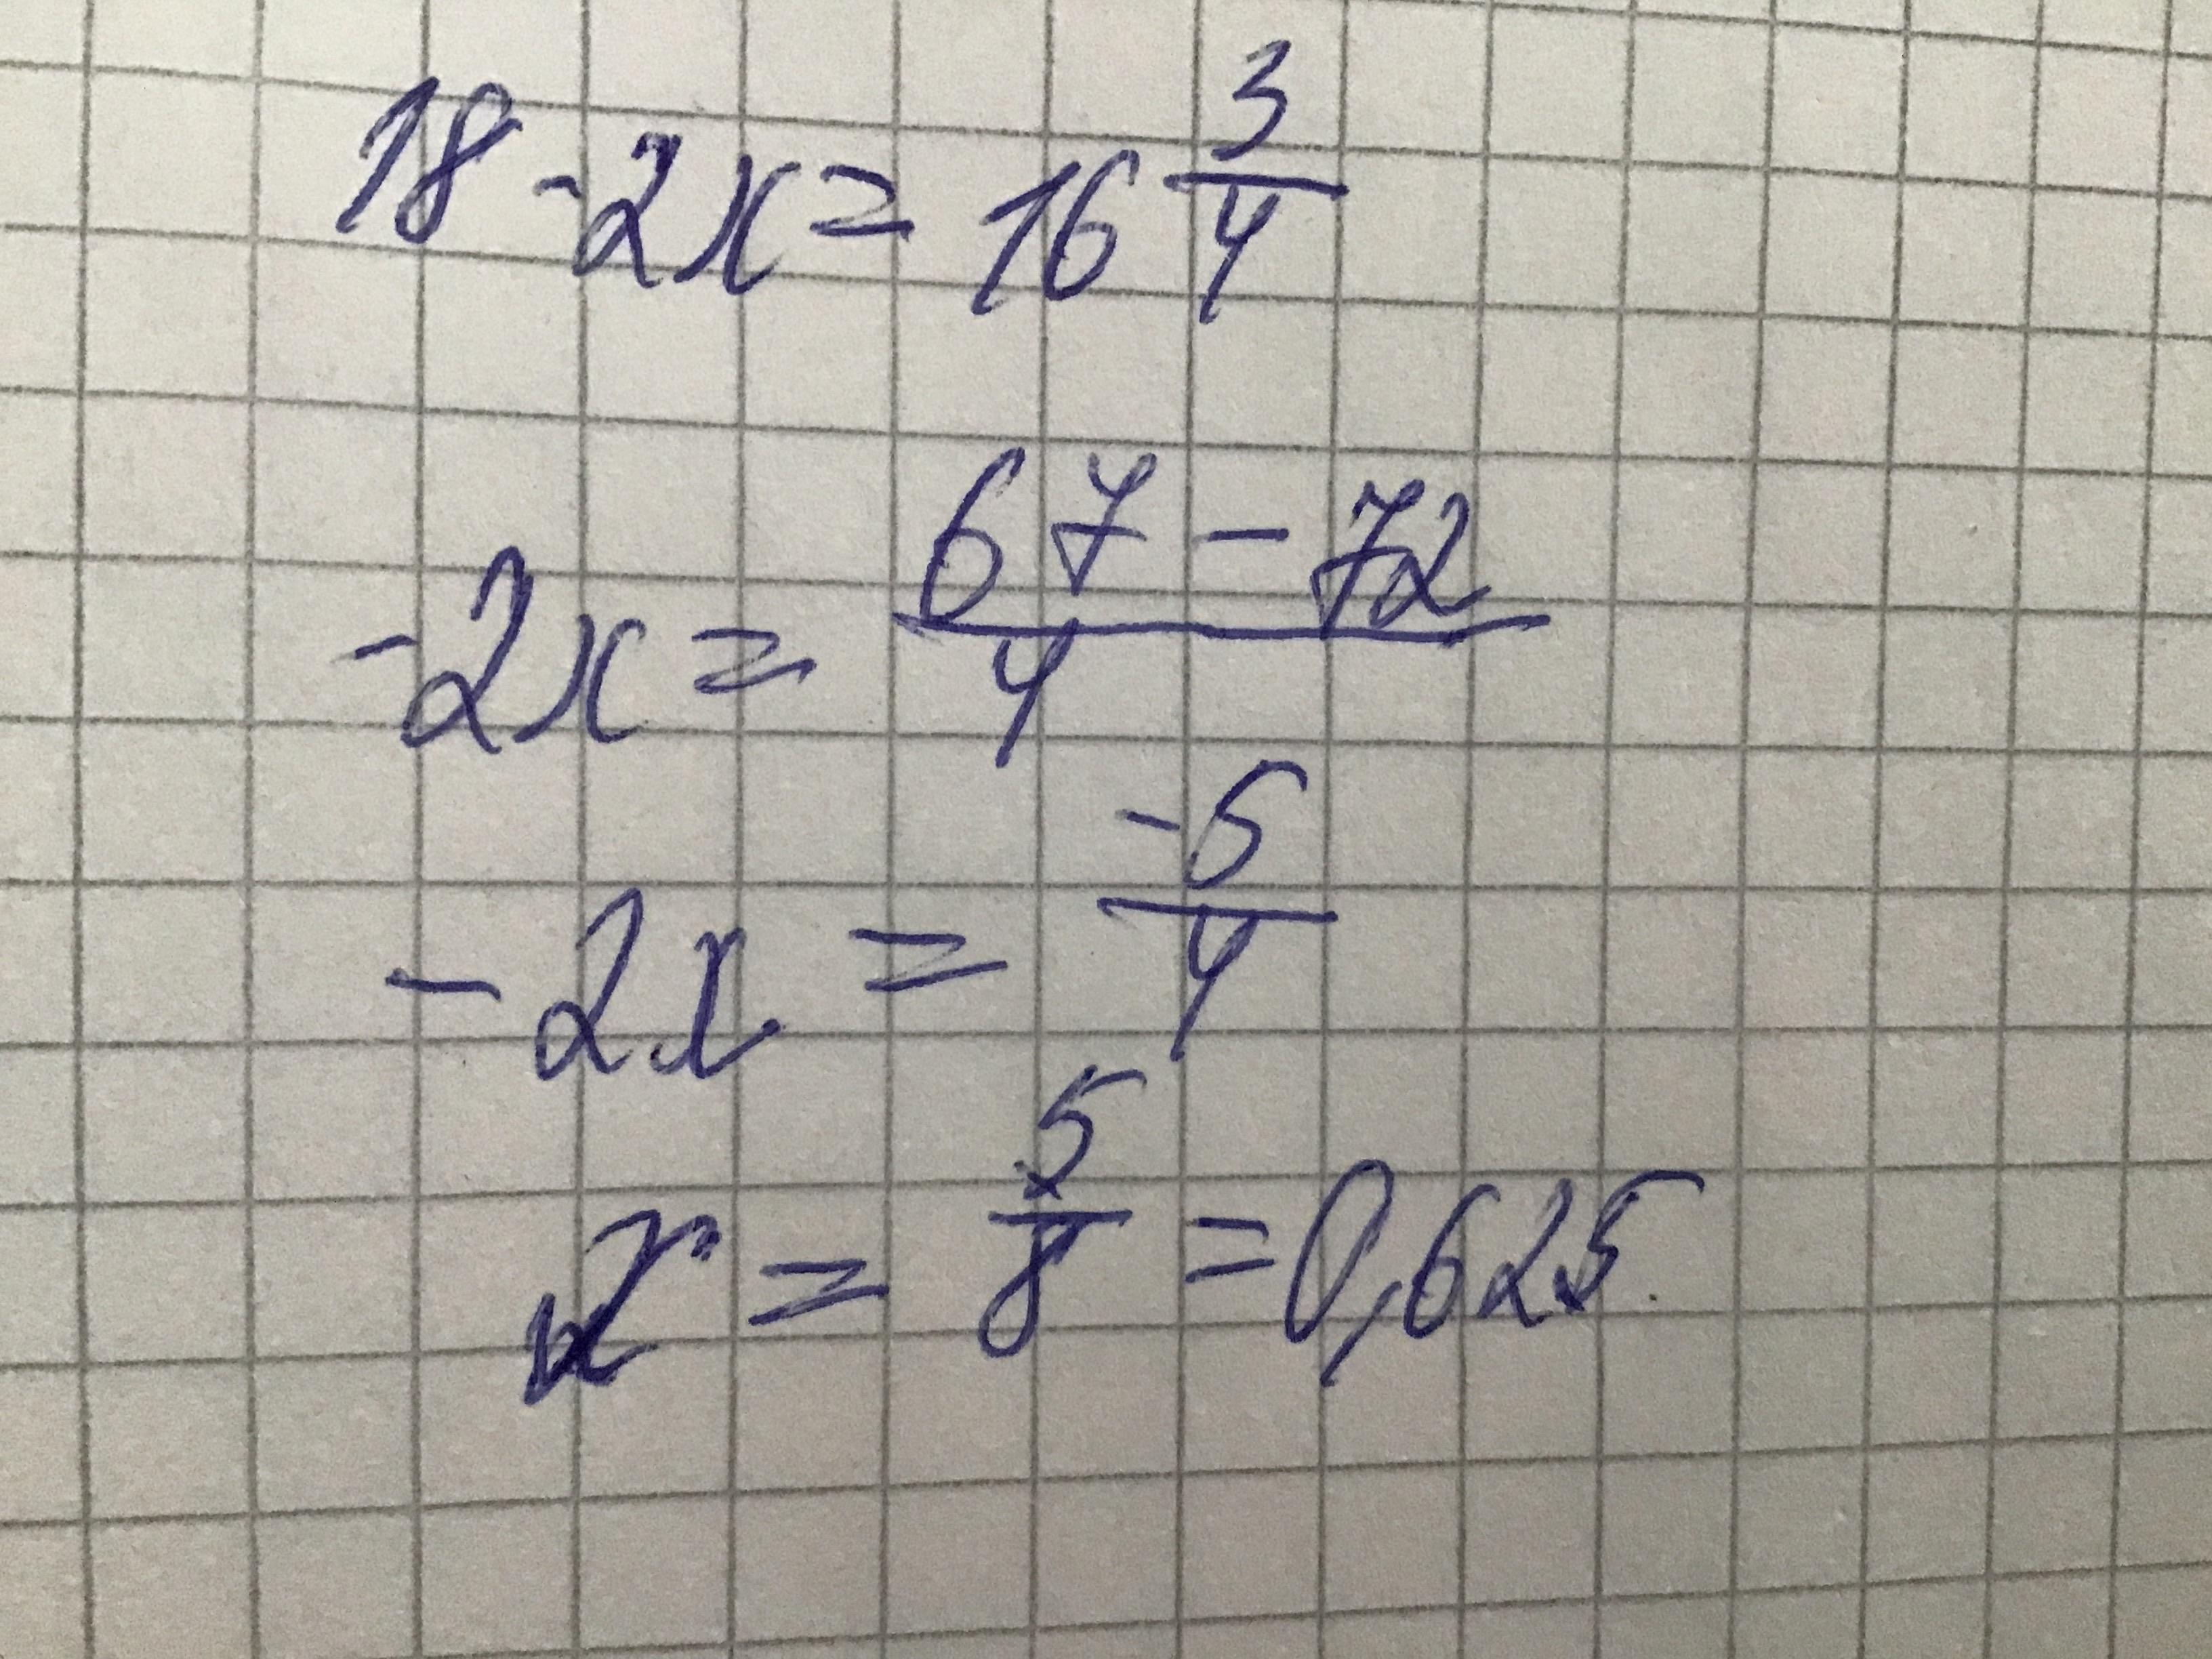 18 -2x = 16 3/4
-2x = (67 - 72)/4
-2x = -5/4
x = 5/8 = 0,625